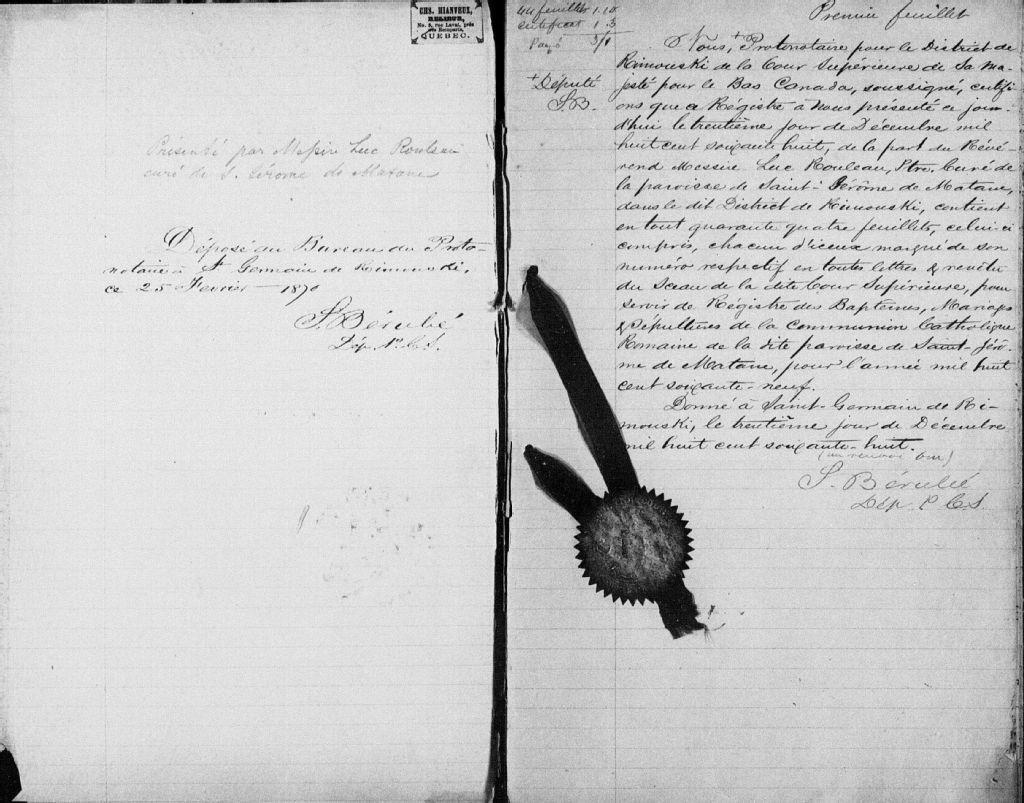 CHS. MIANVEUX,
RELIEUR,
No. 5, rue Laval, près
des Remparts,
QUEBEC.
Présenté par Messire Luc Rouleau
curé de S. Jérome de Matane
Déposé au Bureau du Proto-
notaire à St Germain de Rimouski,
ce 25 Fevrier 1870
S. Bérubé
Dép. P. C. S.
44 feuillets 1.10
Certificat 1.3
Payé
Premier feuillet
+ Député
S.B.
Nous, + Protonotaire pour le District de
Rimouski de la Cour Supérieure de Sa Ma-
jesté pour le Bas Canada, soussigné, certifi-
ons que ce Régistre à nous présenté ce jour-
d'hui le trentième jour de Décembre mil
huit cent soixante huit, de la part du Révé-
rend Messire Luc Rouleau, Ptre, Curé de
la paroisse de Saint-Jérôme de Matane,
dans le dit District de Rimouski, contient
en tout quarante quatre feuillets, celui ci
compris, chacun d'iceux marqué de son
numéro respectif en toutes lettres & revêtu
du Sceau de la dite Cour Supérieure, pour
servir de Régistre des Baptêmes, Mariages
& Sépultures de la Communion Catholique
Romaine de la dite paroisse de Saint-Jérô-
me de Matane, pour l'année mil huit
cent soixante-neuf.
Donné à Saint-Germain de Ri-
mouski, le trentième jour de Décembre
mil huit cent soixante-huit.
(un renvoi bon)
S. Bérubé
Dép. P. C. S.